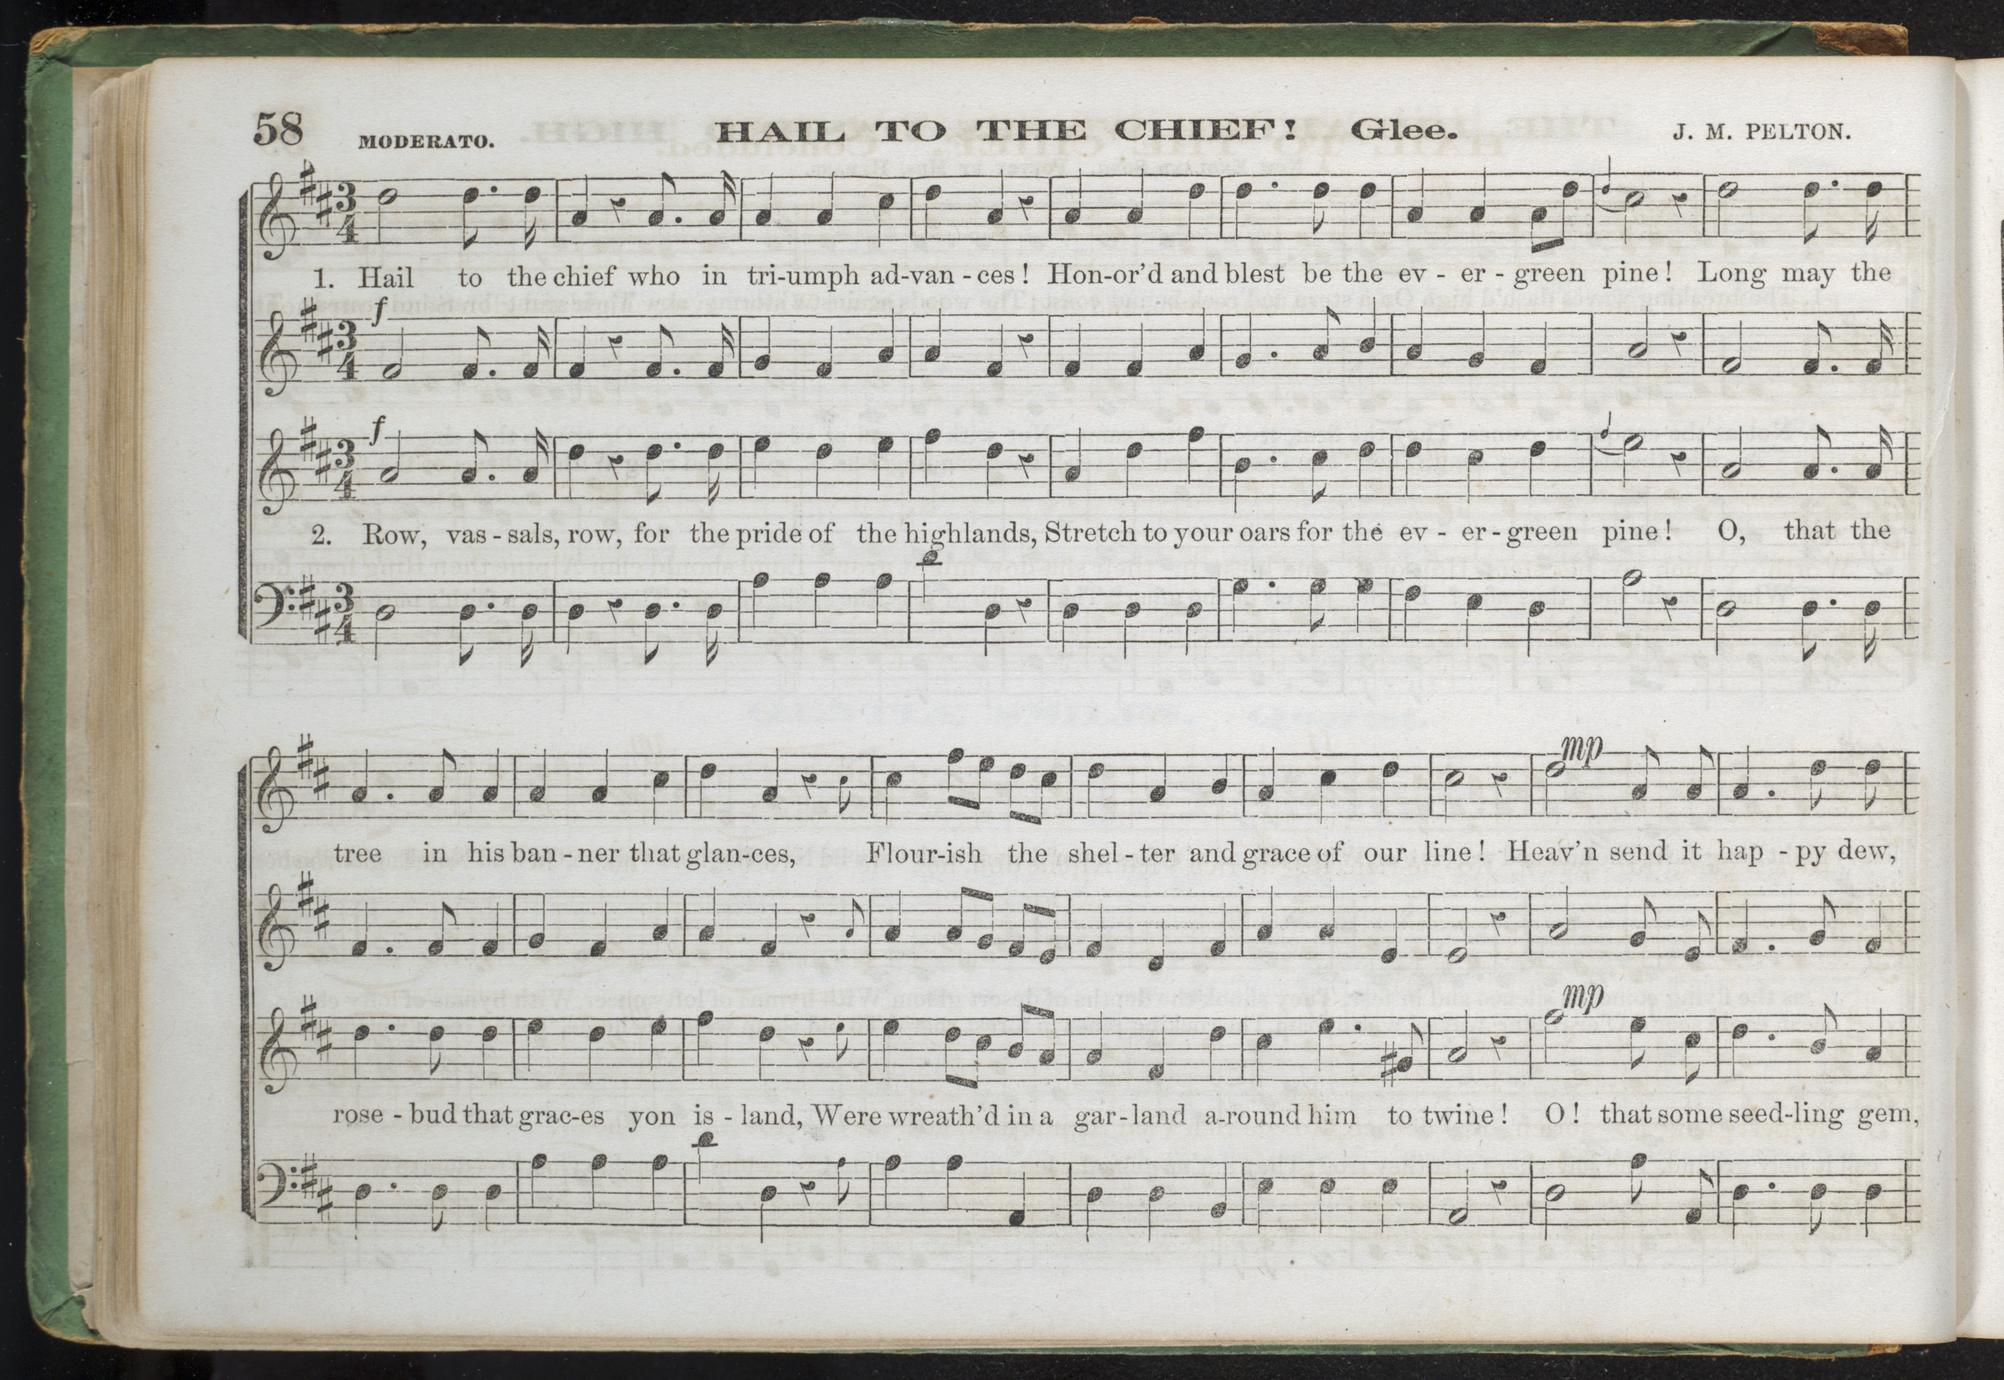 58 MODERATO. HAIL TO THE CHIEF! Glee. J. M. PELTON.
1. Hail to the chief who in tri-umph ad-van-ces! Hon-or'd and blest be the ev-er-green pine! Long may the
f
f
2. Row, vas-sals, row, for the pride of the highlands, Stretch to your oars for the ev-er-green pine! O, that the
mp
tree in his ban-ner that glan-ces, Flour-ish the shel-ter and grace of our line! Heav'n send it hap-py dew,
mp
rose-bud that grac-es yon is-land, Were wreath'd in a gar-land a-round him to twine! O! that some seed-ling gem,